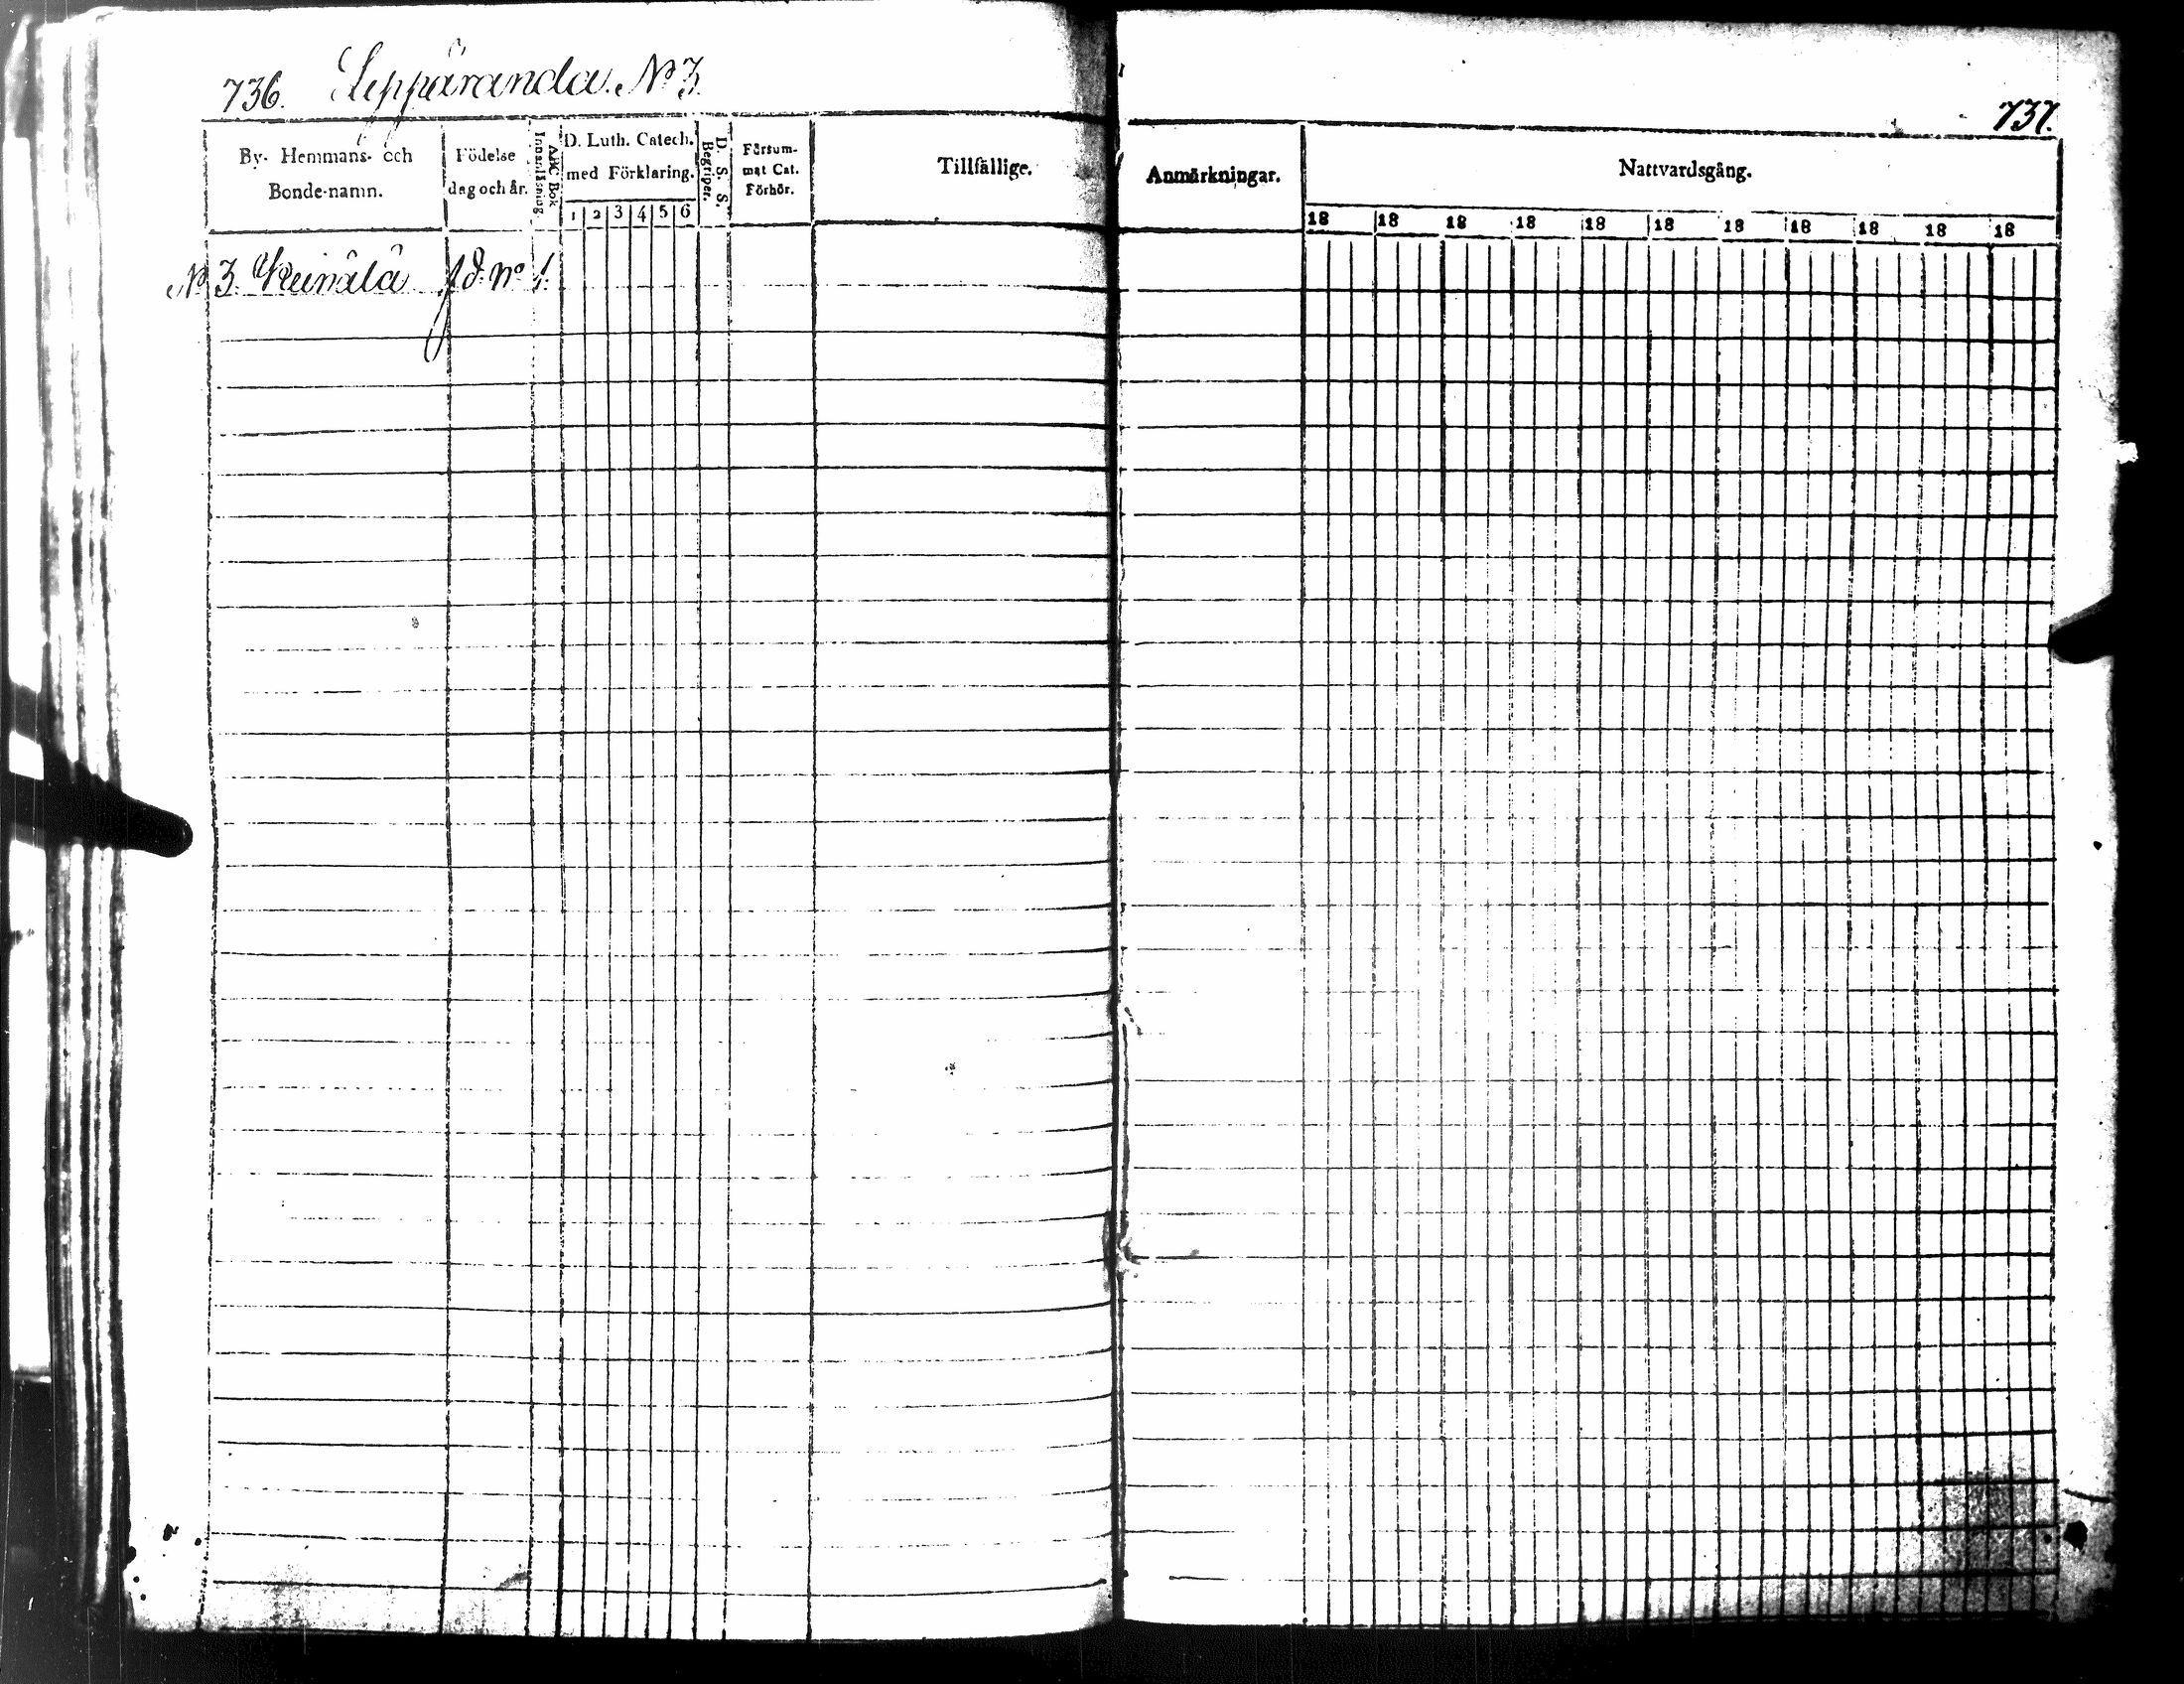 736. Seppäranda. No 3.
737.
By- Hemmans- och Bonde-namn.
Födelse dag och år.
ABC Bok Innanläsning.
D. Luth. Catech. med Förklaring.
1 2 3 4 5 6
D. S. S. Begriper.
Försum- mat Cat. Förhör.
Tillfällige.
Anmärkningar.
Nattvardsgång.
18 18 18 18 18 18 18 18 18 18 18
No 3. No 1.